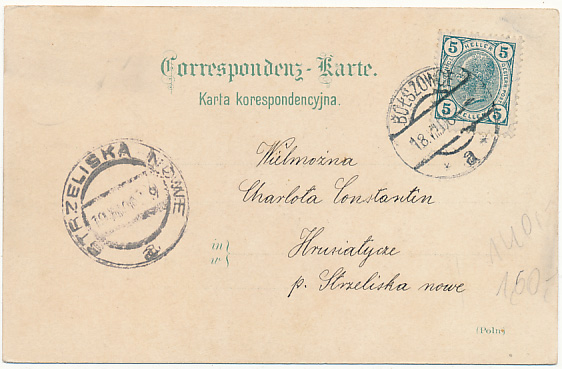 Correspondenz-Karte.
Karta korespondencyjna.
5 HELLER 5
5 HELLER 5
BOŁSZOWCE
18
a
STRZELISKA NOWE
a
Wielmożna
Charlota Constantin
in
w
Hrusiatycze
p. Strzeliska nowe
160.-
(Poln)